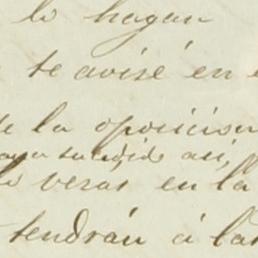 lo hagan
te avisé en
de la oposicion
haya sucedido asi,
lo veras en la
tendrán á la